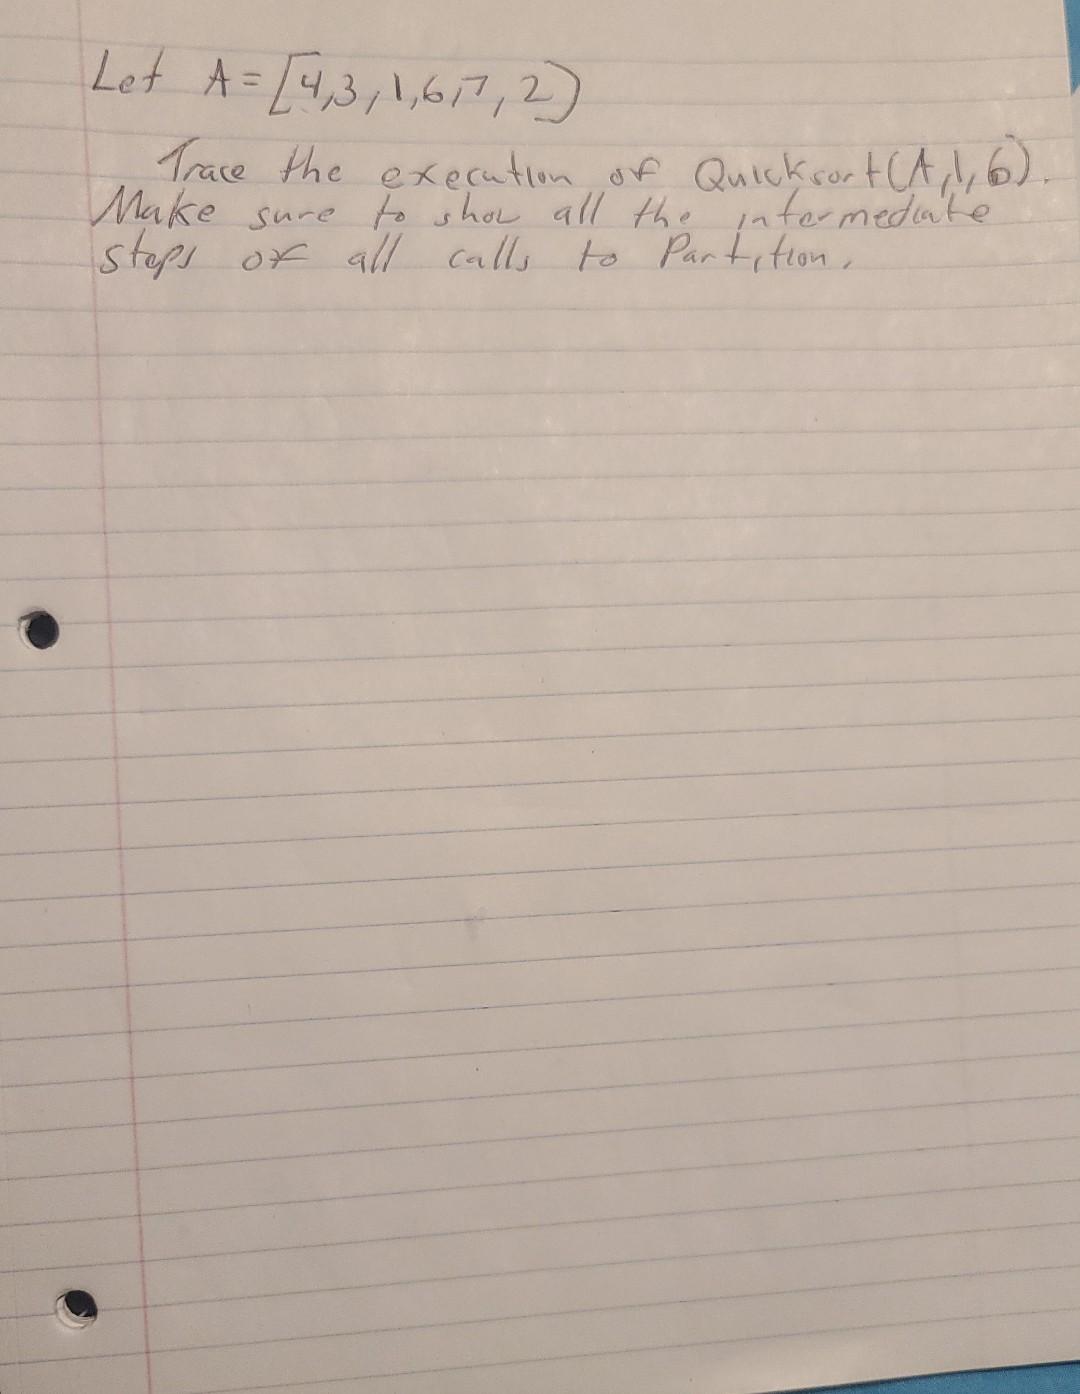 Let A = [4,3,1,6,7,2]
Trace the execution of Quicksort(A,1,6).
Make sure to show all the intermediate
steps of all calls to Partition.